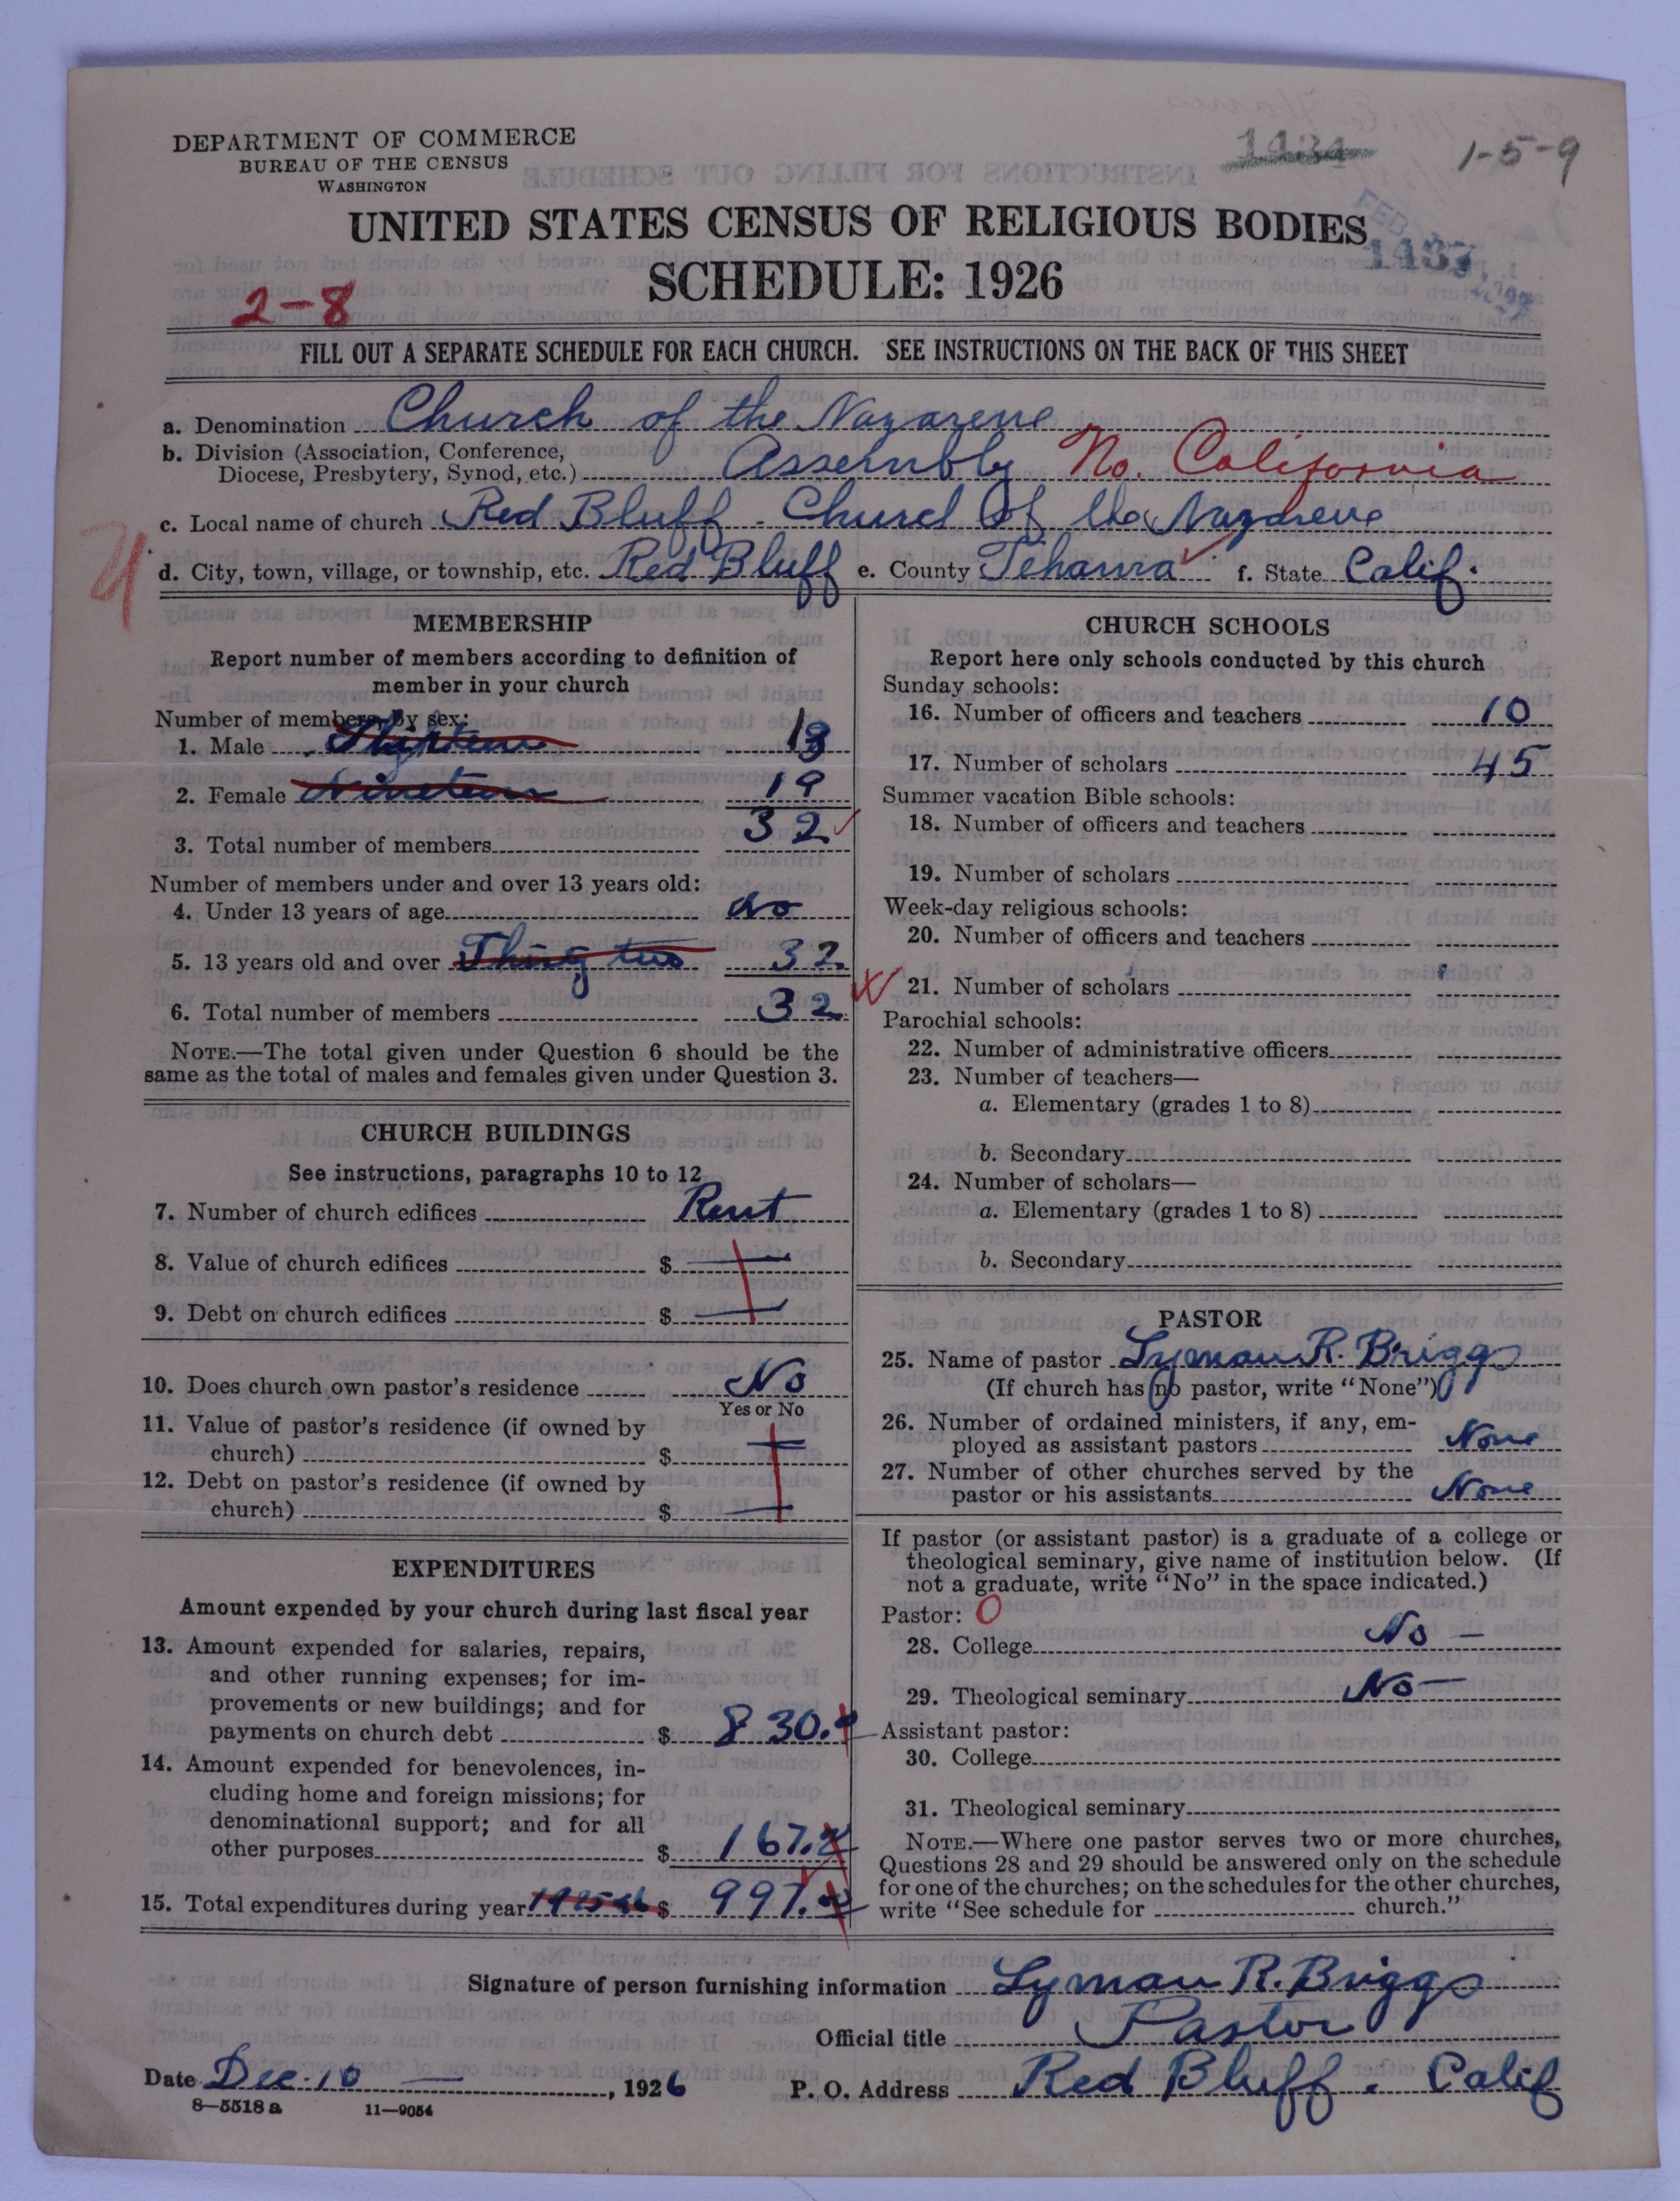 DEPARTMENT OF COMMERCE
BUREAU OF THE CENSUS
WASHINGTON
1434
1-5-9
UNITED STATES CENSUS OF RELIGIOUS BODIES
FEB
1437
SCHEDULE: 1926
2-8
FILL OUT A SEPARATE SCHEDULE FOR EACH CHURCH. SEE INSTRUCTIONS ON THE BACK OF THIS SHEET
a. Denomination Church of the Nazarene
b. Division (Association, Conference,
Diocese, Presbytery, Synod, etc.) Assembly No. California
c. Local name of church Red Bluff - Church of the Nazarene
d. City, town, village, or township, etc. Red Bluff e. County Tehama f. State Calif.
MEMBERSHIP
Report number of members according to definition of
member in your church
Number of members by sex:
1. Male Thirteen 13
2. Female Nineteen 19
3. Total number of members 32
Number of members under and over 13 years old:
4. Under 13 years of age no
5. 13 years old and over Thirty two 32
6. Total number of members 32
NOTE.—The total given under Question 6 should be the
same as the total of males and females given under Question 3.
CHURCH BUILDINGS
See instructions, paragraphs 10 to 12
7. Number of church edifices Rent
8. Value of church edifices $ —
9. Debt on church edifices $ —
10. Does church own pastor's residence No
Yes or No
11. Value of pastor's residence (if owned by
church) $ —
12. Debt on pastor's residence (if owned by
church) $ —
EXPENDITURES
Amount expended by your church during last fiscal year
13. Amount expended for salaries, repairs,
and other running expenses; for im-
provements or new buildings; and for
payments on church debt $ 830.
14. Amount expended for benevolences, in-
cluding home and foreign missions; for
denominational support; and for all
other purposes $ 167.
15. Total expenditures during year $ 997.
CHURCH SCHOOLS
Report here only schools conducted by this church
Sunday schools:
16. Number of officers and teachers 10
17. Number of scholars 45
Summer vacation Bible schools:
18. Number of officers and teachers
19. Number of scholars
Week-day religious schools:
20. Number of officers and teachers
21. Number of scholars
Parochial schools:
22. Number of administrative officers
23. Number of teachers—
a. Elementary (grades 1 to 8)
b. Secondary
24. Number of scholars—
a. Elementary (grades 1 to 8)
b. Secondary
PASTOR
25. Name of pastor Lyman R. Briggs
(If church has no pastor, write "None")
26. Number of ordained ministers, if any, em-
ployed as assistant pastors None
27. Number of other churches served by the
pastor or his assistants None
If pastor (or assistant pastor) is a graduate of a college or
theological seminary, give name of institution below. (If
not a graduate, write "No" in the space indicated.)
Pastor: 0
28. College No —
29. Theological seminary No —
Assistant pastor:
30. College
31. Theological seminary
NOTE.—Where one pastor serves two or more churches,
Questions 28 and 29 should be answered only on the schedule
for one of the churches; on the schedules for the other churches,
write "See schedule for church."
Signature of person furnishing information Lyman R. Briggs
Official title Pastor
Date Dec. 10 —, 1926 P. O. Address Red Bluff. Calif
8—5518 a 11—9054